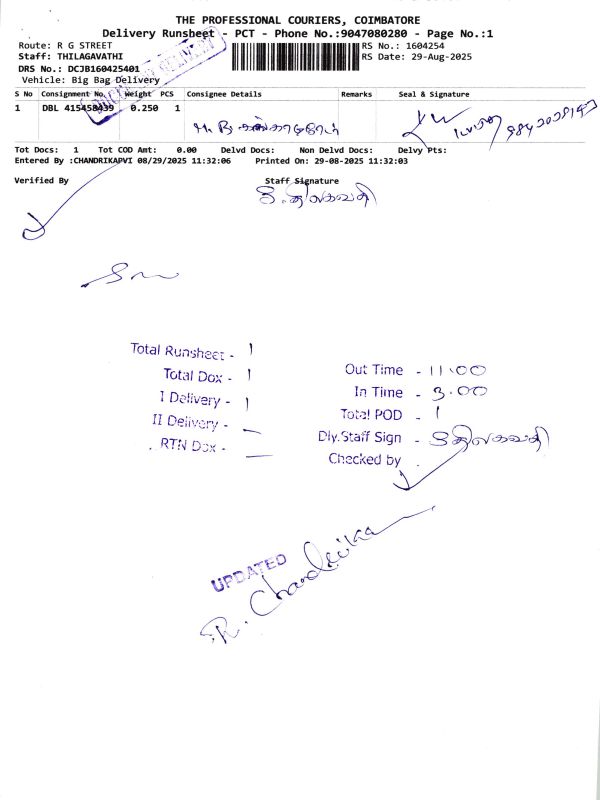 THE PROFESSIONAL COURIERS, COIMBATORE
Delivery Runsheet - PCT - Phone No.:9047080280 - Page No.:1
Route: R G STREET
RS No.: 1604254
Staff: THILAGAVATHI
RS Date: 29-Aug-2025
DRS No.: DCJB160425401
Vehicle: Big Bag Delivery
S No Consignment No. Weight PCS Consignee Details Remarks Seal & Signature
1 DBL 415458439 0.250 1
Tot Docs: 1 Tot COD Amt: 0.00 Delvd Docs: Non Delvd Docs: Delvy Pts:
Entered By :CHANDRIKAPVI 08/29/2025 11:32:06 Printed On: 29-08-2025 11:32:03
Verified By Staff Signature
S. திலகவதி
Total Runsheet - 1
Total Dox - 1
I Delivery - 1
II Delivery - —
RTN Dox - —
Out Time - 11:00
In Time - 3.00
Total POD - 1
Dly.Staff Sign - S திலகவதி
Checked by
UPDATED
R. Chandrika